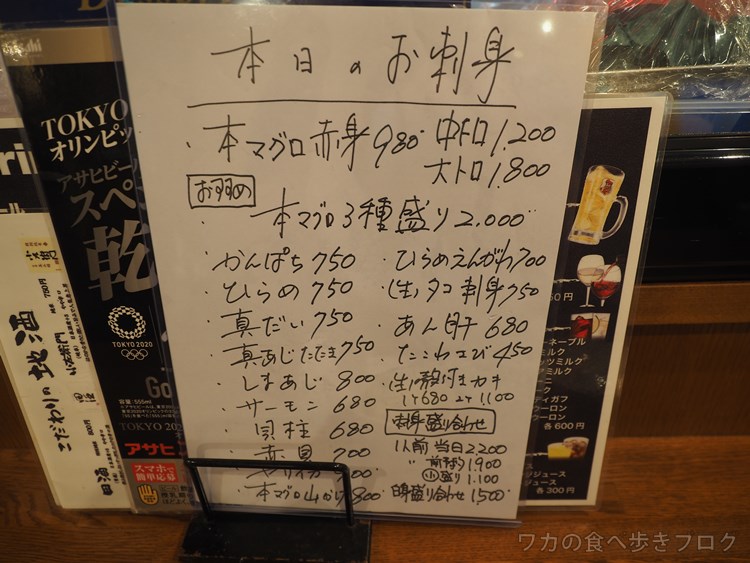 本日のお刺身
・本マグロ赤身980 中トロ1,200
大トロ1,800
お勧め
・本マグロ3種盛り2,000
・かんぱち750
・ひらめ750
・真だい750
・真あじたたき750
・しまあじ800
・サーモン680
・貝柱680
・赤貝700
・本マグロ山かけ800
・ひらめえんがわ700
・(生)タコ刺身750
・あん肝680
・たこわさび450
・(生)殻付きカキ
1ケ680 2ケ1100
刺身盛り合わせ
1人前 当日2,200
〃 1900
小盛り1.100
白身盛り合わせ1,500
TOKYO
オリンピッ
アサヒビール
スペ
乾
TOKYO 2020
容量:555ml
TOKYO 202
アサヒ
スマホで
簡単応募
こだわりの地酒
ーネーブル
ミルク
ッツミルク
アミルク
ニ
ク
ディガフ
ーロン
ウーロン
各600円
ジュース
ジュース
各300円
ワカの食べ歩きブログ